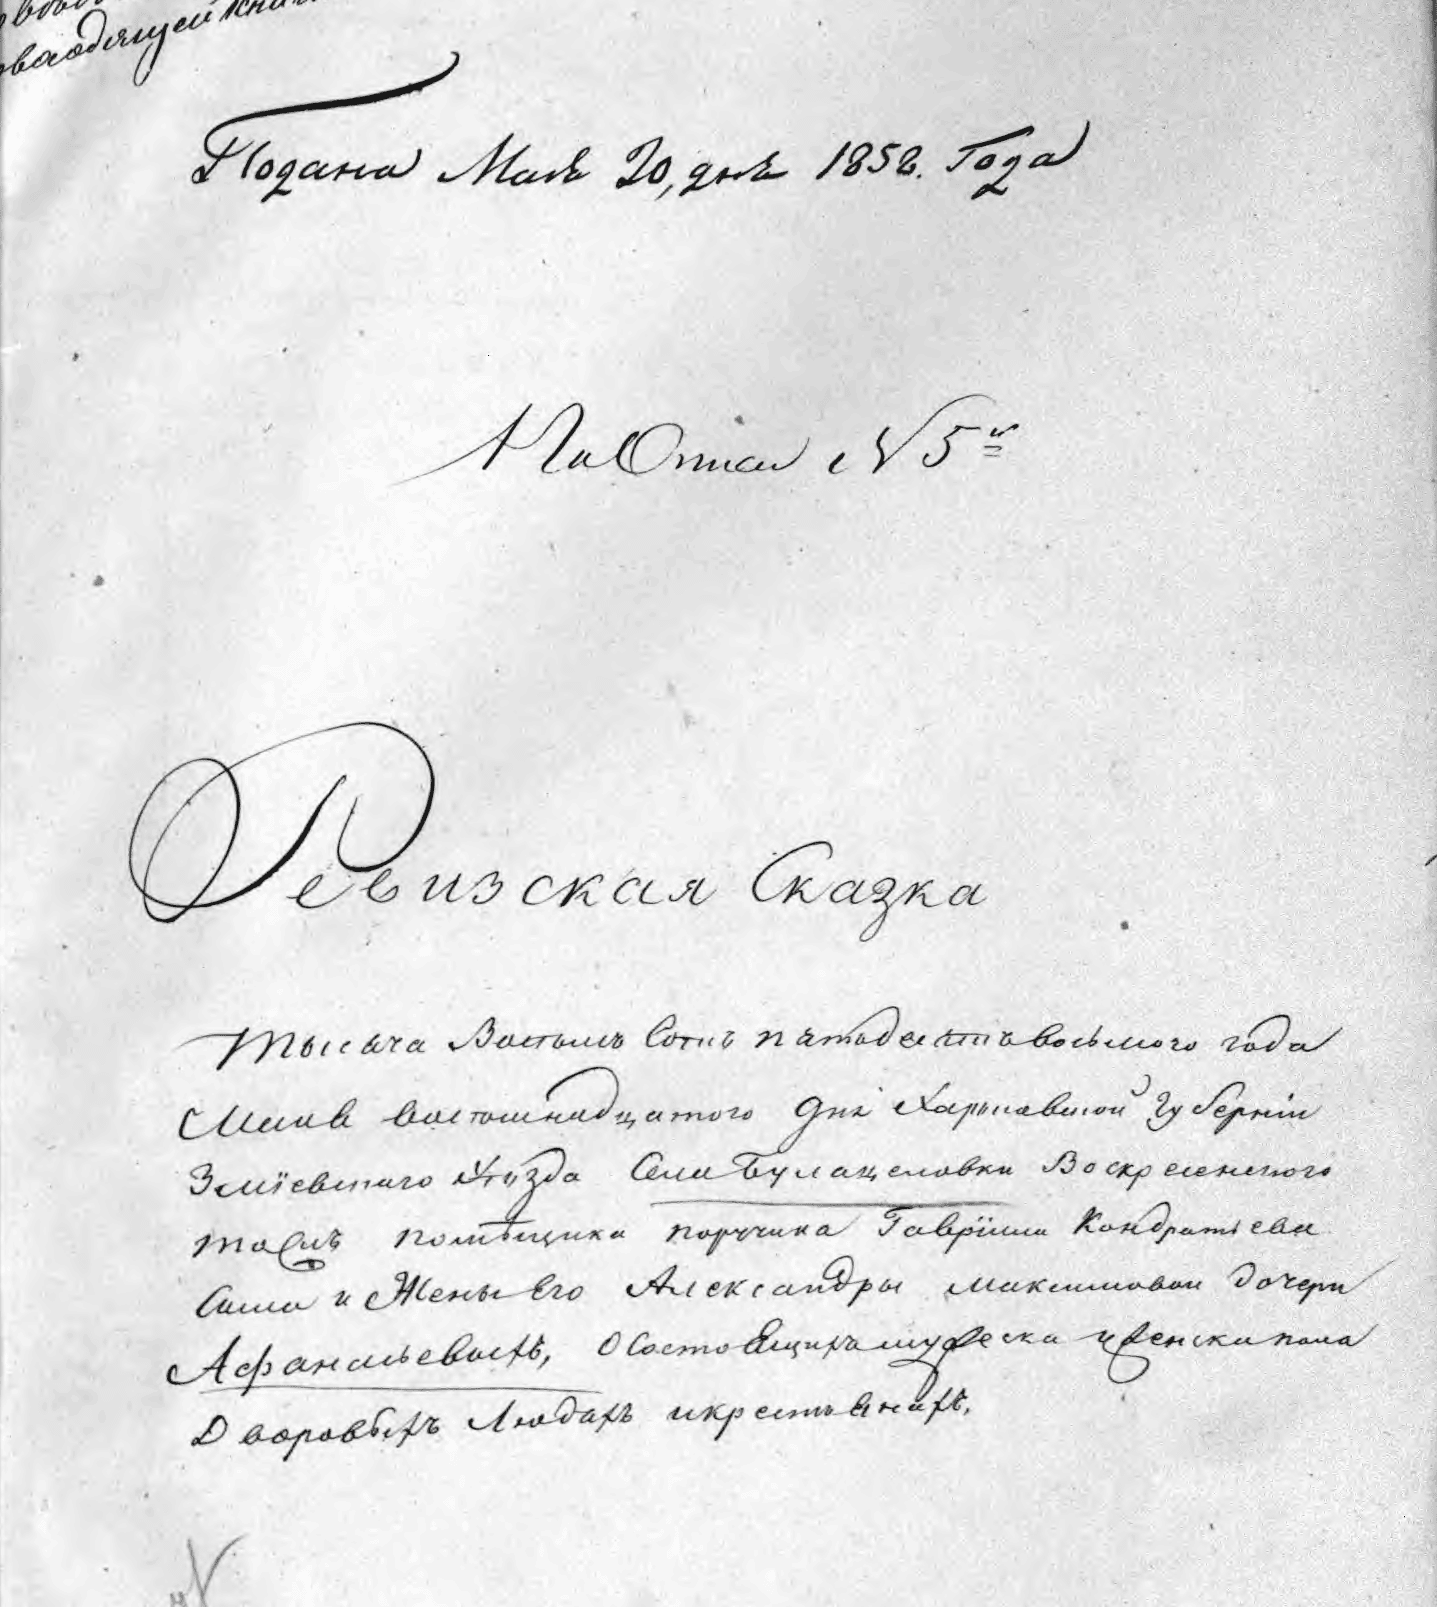 входящей книги
Подана Мая 20, дня 1858. Года
По Описи N 5й
Ревизская Сказка
Тысяча Восемь Сотъ пятьдесятъ восьмого года
Мая восемнадцатого дня Харьковской Губернiи
Змiевского Уѣзда Села Булацеловки Воскресенского
тожъ помѣщика поручика Гаврiила Кондратьева
Сына и Жены Его Александры Максимовой дочери
Афанасьевыхъ, О Состоящихъ мужеска и женска пола
Дворовыхъ Людяхъ и крестьянахъ.